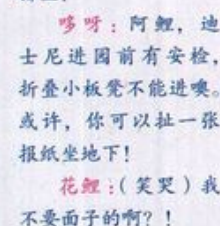 哆呀：阿鲤，迪
士尼进园前有安检，
折叠小板凳不能进噢。
或许，你可以扯一张
报纸坐地下！
花鲤：（笑哭）我
不要面子的啊？！